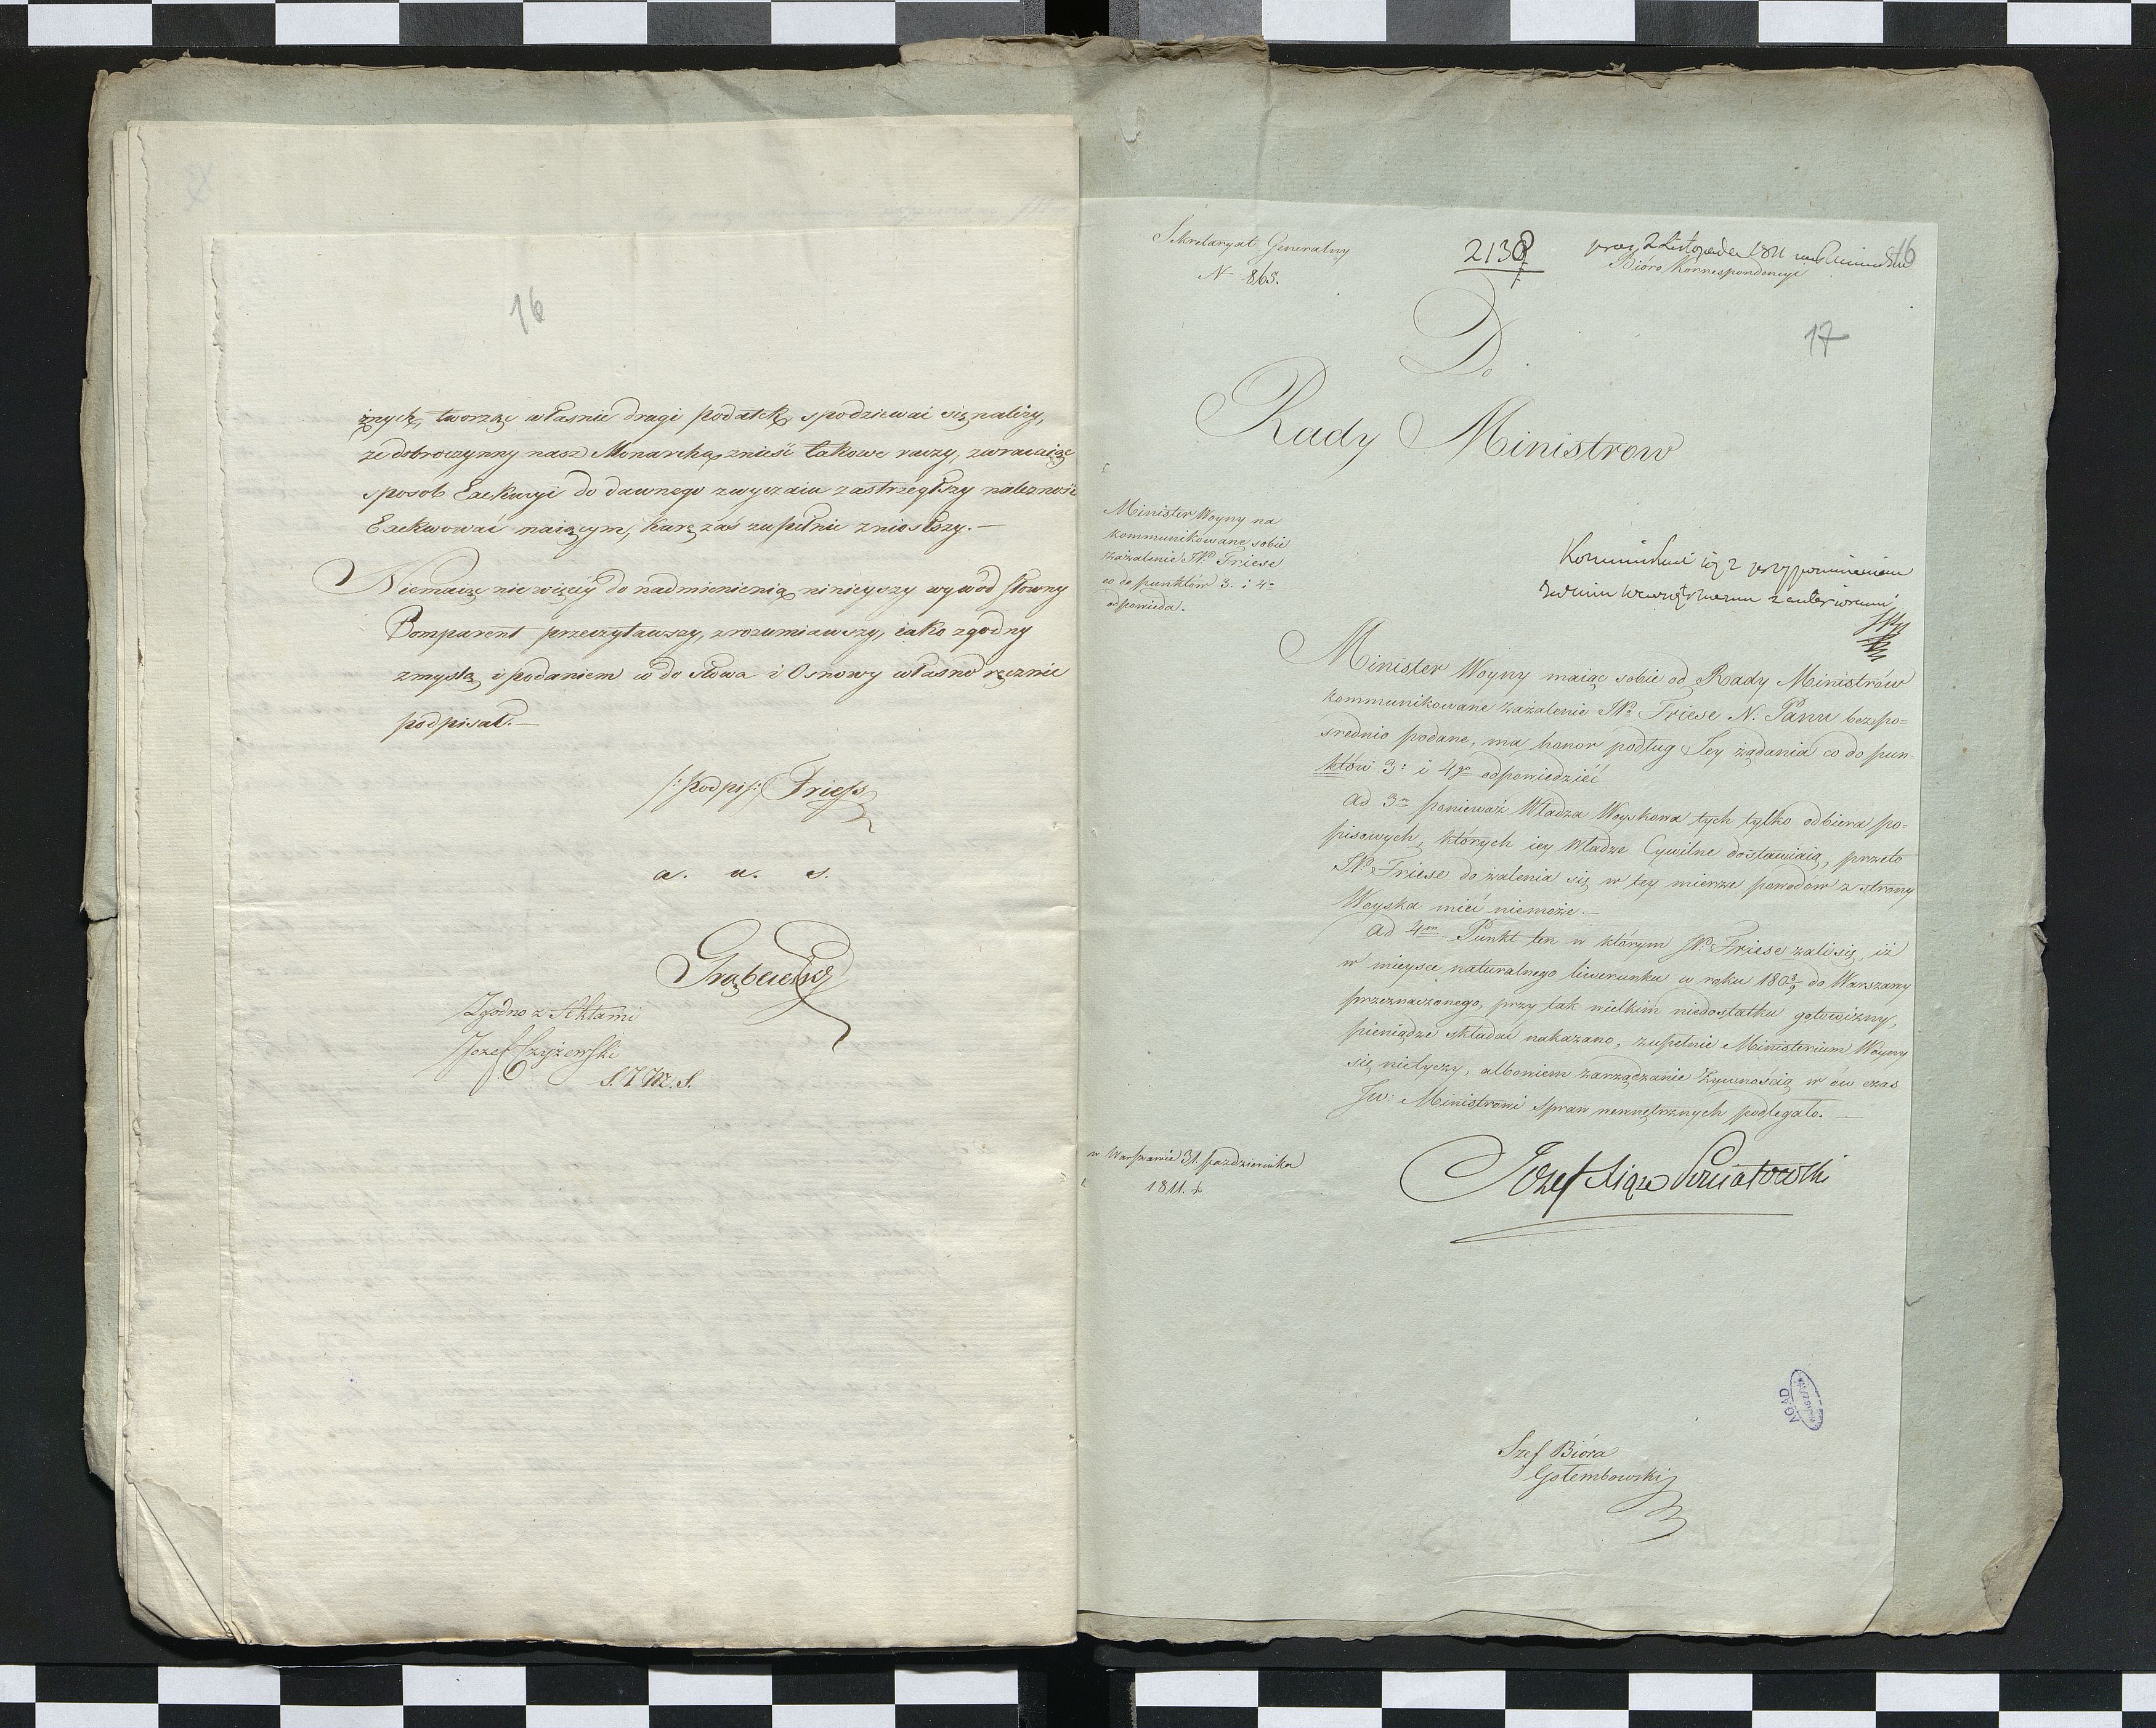 16
żnych, tworząc własnie drugi podatek, spodziewać się należy,
że dobroczynny nasz Monarcha, znieść takowe raczy, zwracaiąc
sposob Exekucyi do dawnego zwyczaiu zastrzegłszy należność
Exekwować maiącym, karę zaś zupełnie zniosłszy. —
Niemaiąc nic więcéy do nadmienienia, ninieyszy wywód słowny
Comparent przeczytawszy, zrozumiawszy, iako zgodny
z myslą i podaniem co do słowa i Osnowy własno ręcznie
podpisał. —
/: podpis :/ Friess
a. u. s.
Grąbczewski
Zgodno z Aktami
Jozef Czyżewski
S. J. M. S.
Sekretaryat Generalny
No 865.
2130
prez. 2 Listopada 1811
Bióro Korrespondencyi
16
17
Do
Rady Ministrow
Minister Woyny na
kommunikowane sobie
zażalenie JP. Friese
co do punktów 3. i 4o
odpowiada.
Kommunikować z przypomnieniem
Minister Woyny maiąc sobie od Rady Ministrów
kommunikowane zażalenie JPa Friese N. Panu bezpo=
srednio podane, ma honor podług Jey żądania co do pun-
któw 3: i 4go odpowiedzieć
Ad 3m ponieważ Władza Woyskowa tych tylko odbiera po=
pisowych, których iey Władze Cywilne dostawiaią, przeto
JP. Friese do żalenia się w tey mierze powodów z strony
Woyska mieć niemoże. —
Ad 4m Punkt ten w którym JP. Friese żali się, iż
w mieysce naturalnego liwerunku w roku 1808/9 do Warszawy
przeznaczonego, przy tak wielkim niedostatku gotowizny,
pieniądze składać nakazano, zupełnie Ministerium Woyny
się nietyczy, albowiem zarządzanie Żywnością w ów czas
Jw: Ministrowi Spraw wewnętrznych podlegało. —
w Warszawie 31. Października
1811. r.
Jozef Xiąże Poniatowski
AGAD
Szef Bióra
Gołembowski